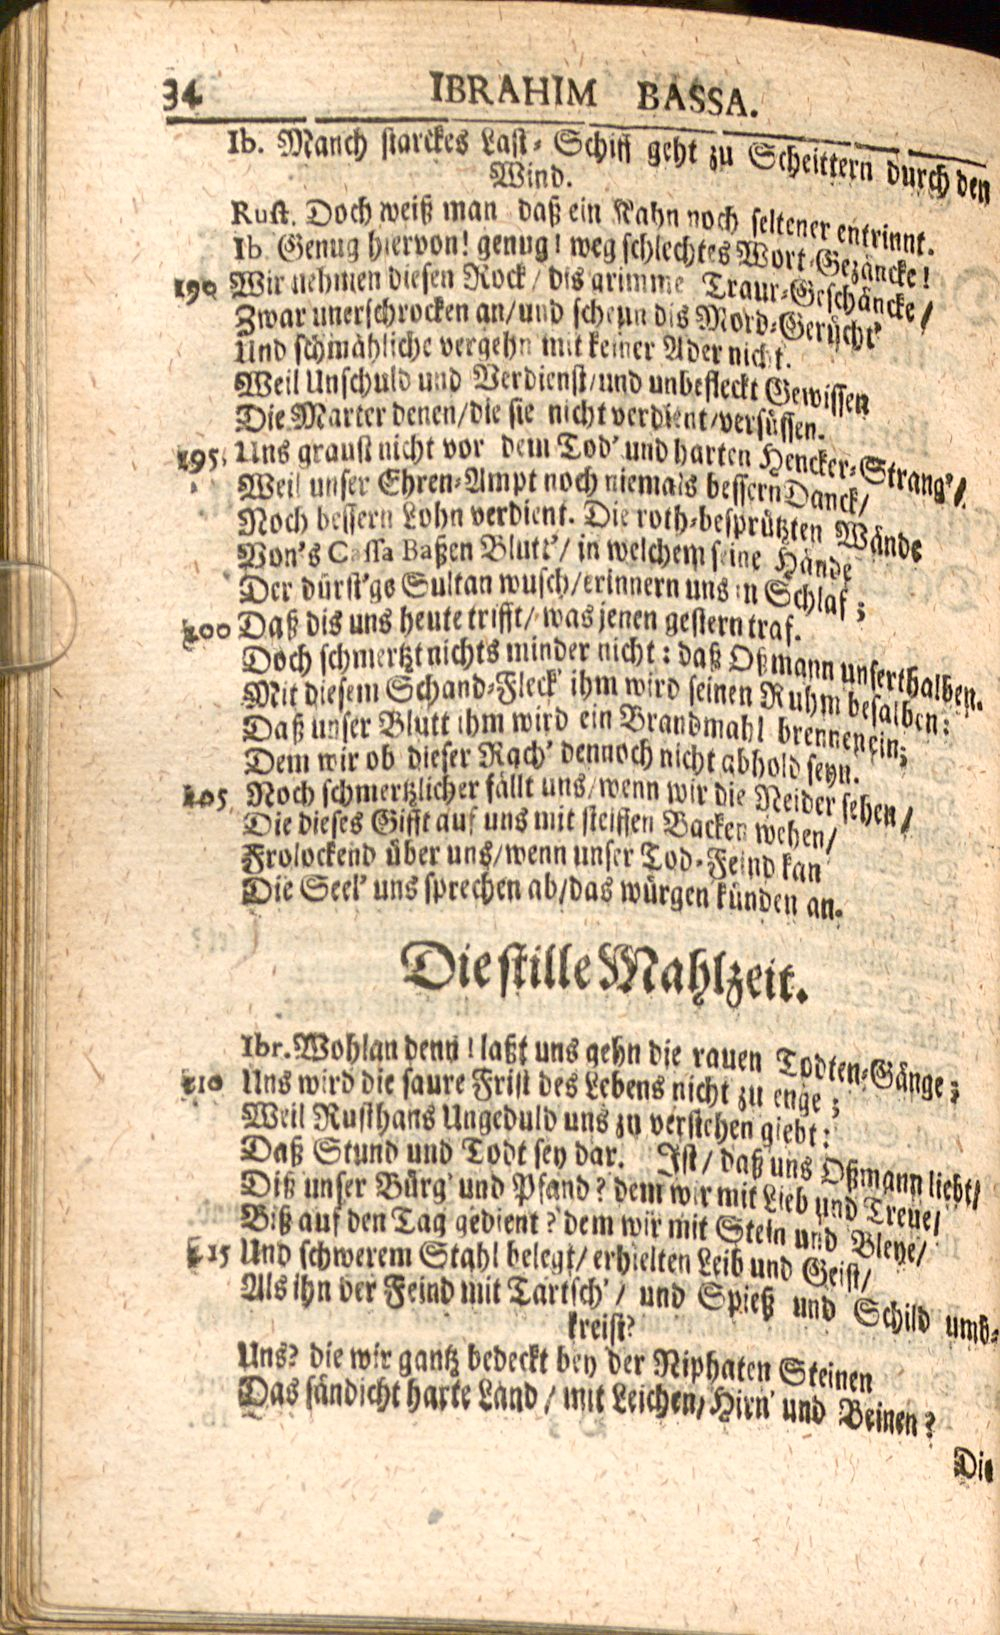 34 IBRAHIM BASSA.
Ib. Manch starckes Last-Schiff geht zu Scheittern durch den
Wind.
Rust. Doch weiß man daß ein Kahn noch seltener entrinnt.
Ib Genug hiervon! genug! weg schlechtes Wort-Gezäncke!
190 Wir nehmen diesen Rock / dis grimme Traur-Geschäncke /
Zwar unerschrocken an/ und scheun dis Mord-Gerücht'
Und schmähliche vergehn mit keiner Ader nicht.
Weil Unschuld und Verdienst/ und unbefleckt Gewissen
Die Marter denen/ die sie nicht verdient/ versüssen.
195. Uns graust nicht vor dem Tod' und harten Hencker-Strang'/
Weil unser Ehren-Ampt noch niemals bessern Danck/
Noch bessern Lohn verdient. Die roth-besprützten Wände
Von's Cassa Baßen Blutt'/ in welchem seine Hände
Der dürst'ge Sultan wusch/ erinnern uns in Schlaf;
200 Daß dis uns heute trifft/ was jenen gestern traf.
Doch schmertzt nichts minder nicht: daß Oßmann unserthalben.
Mit diesem Schand-Fleck' ihm wird seinen Ruhm besalben:
Daß unser Blutt ihm wird ein Brandmahl brennen ein;
Dem wir ob dieser Rach' dennoch nicht abhold seyn.
205 Noch schmertzlicher fällt uns/ wenn wir die Neider sehen /
Die dieses Gifft auf uns mit steiffen Backen wehen/
Frolockend über uns/ wenn unser Tod-Feind kan
Die Seel' uns sprechen ab/ das würgen künden an.
Die stille Mahlzeit.
Ibr. Wohlan denn! laßt uns gehn die rauen Todten-Gänge;
210 Uns wird die saure Frist des Lebens nicht zu enge;
Weil Rusthans Ungeduld uns zu verstehen giebt:
Daß Stund und Todt sey dar. Ist/ daß uns Oßmann liebt/
Diß unser Bürg' und Pfand? dem wir mit Lieb und Treue/
Biß auf den Tag gedient? dem wir mit Stein und Bleye/
215 Und schwerem Stahl belegt/ erhielten Leib und Geist/
Als ihn der Feind mit Tartsch' / und Spieß und Schild umb-
kreist?
Uns? die wir gantz bedeckt bey der Niphaten Steinen
Das sändicht harte Land / mit Leichen/ Hirn' und Beinen?
Die